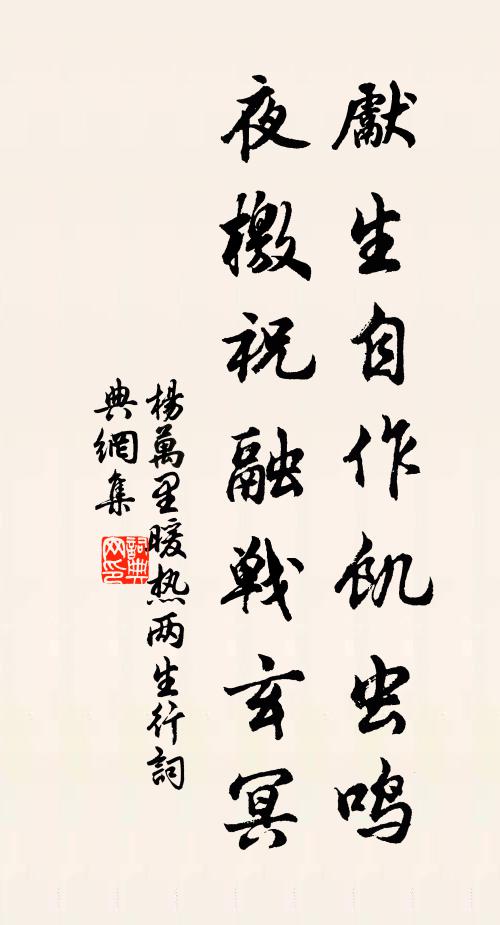 獻生自作飢虫鸣
夜檄祝融戦玄冥
楊萬里暖热两生行詞
典網集
詞典
网印